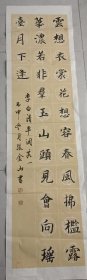 雲想衣裳花想容春風拂檻露
華濃若非羣玉山頭見會向瑶
臺月下逢
李白清平調其一
張金山書